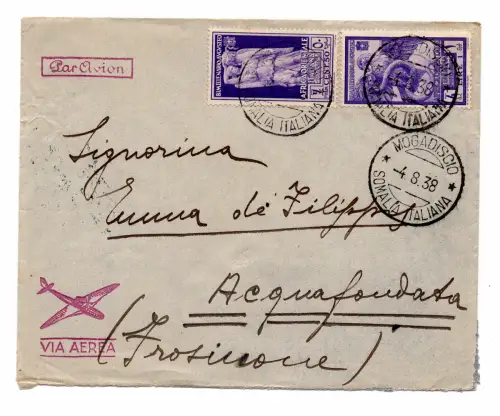 Par Avion
BIMILLENARIO AUGUSTEO
AFRICA ORIENTALE
CENT. 50
SOMALIA ITALIANA
MOGADISCIO
-4.8.38
SOMALIA ITALIANA
Signorina
Emma de Filippis
Acquafondata
VIA AEREA
(Frosinone)